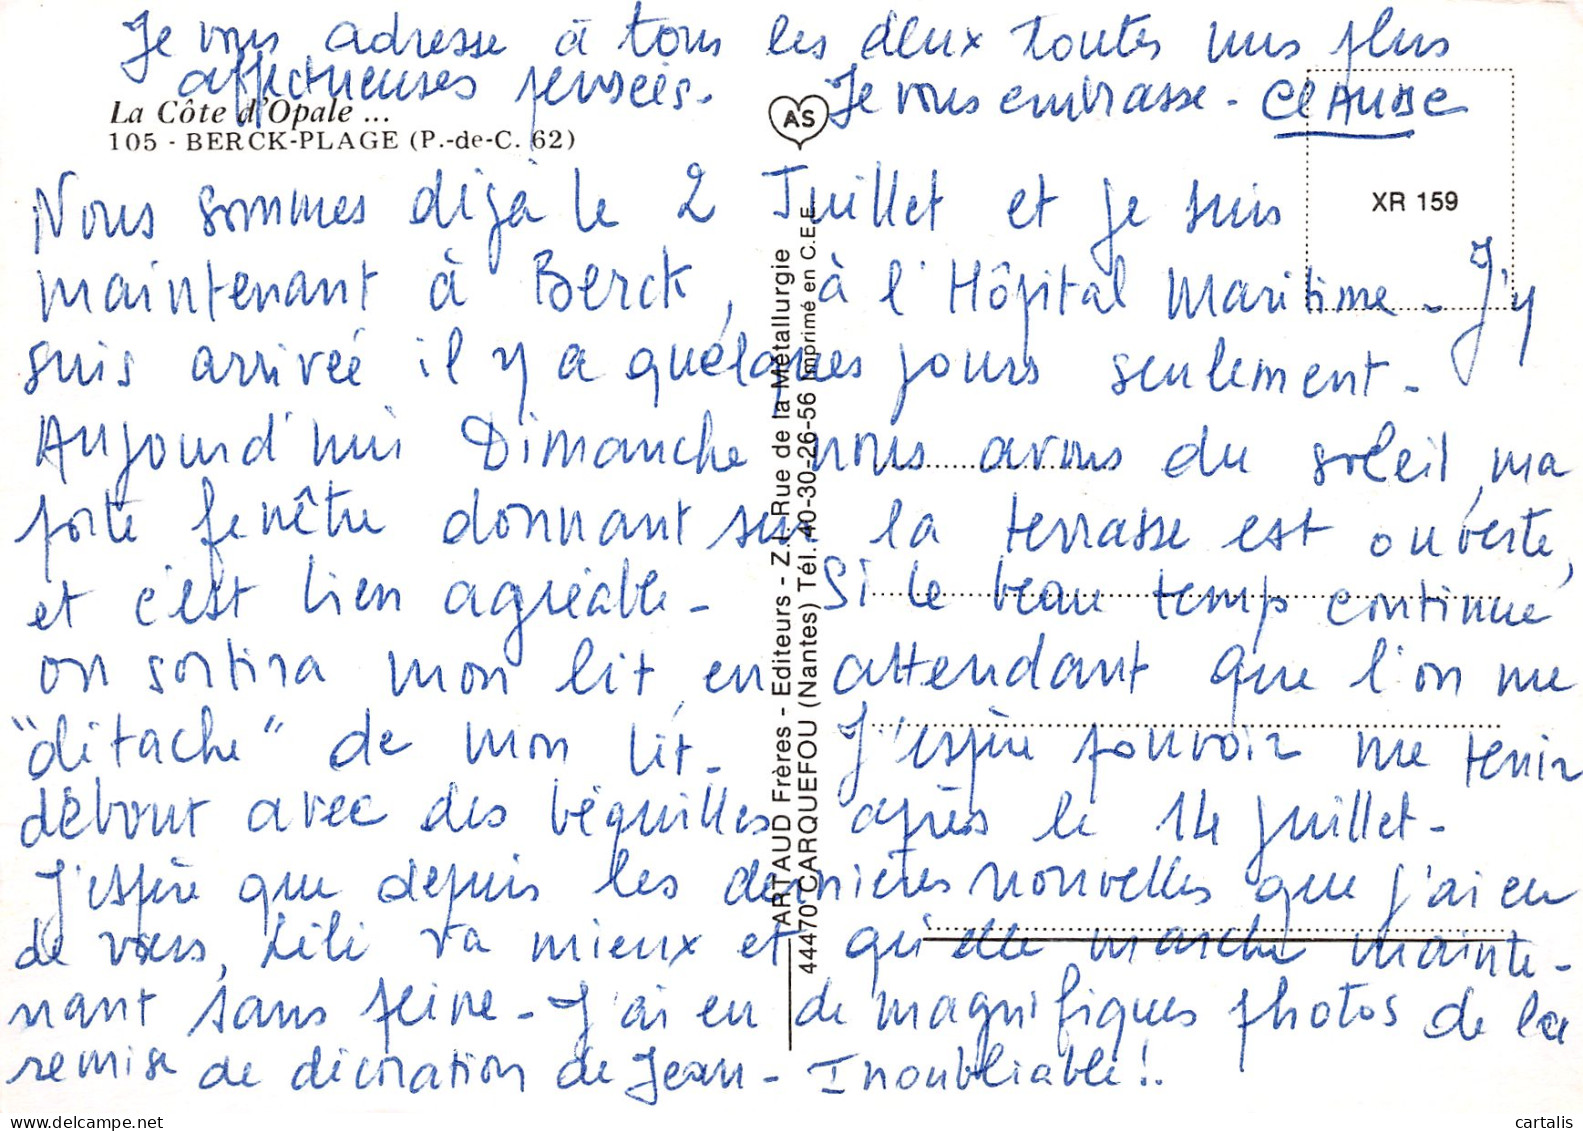 Je vous adresse à tous les deux toutes mes plus
affectueuses pensées. Je vous embrasse - CLAUDE
La Côte d'Opale ...
105 - BERCK-PLAGE (P.-de-C. 62)
AS
XR 159
Nous sommes déjà le 2 Juillet et je suis
maintenant à Berck, à l'Hôpital Maritime - J'y
suis arrivée il y a quelques jours seulement -
Aujourd'hui Dimanche nous avons du soleil, ma
porte fenêtre donnant sur la terrasse est ouverte,
et c'est bien agréable - Si le beau temps continue
on sortira mon lit, en attendant que l'on me
"détache" de mon lit - J'espère pouvoir me tenir
debout avec des béquilles après le 14 juillet -
J'espère que depuis les dernières nouvelles que j'ai eu
de vous, Lili va mieux et qu'elle marche mainte-
nant sans peine - J'ai eu de magnifiques photos de la
remise de décoration de Jean - Inoubliable !.
ARTAUD Frères - Editeurs - Z.I. Rue de la Métallurgie
44470 CARQUEFOU (Nantes) Tél. 40-30-26-56 Imprimé en C.E.E.
delcampe.net
cartalis